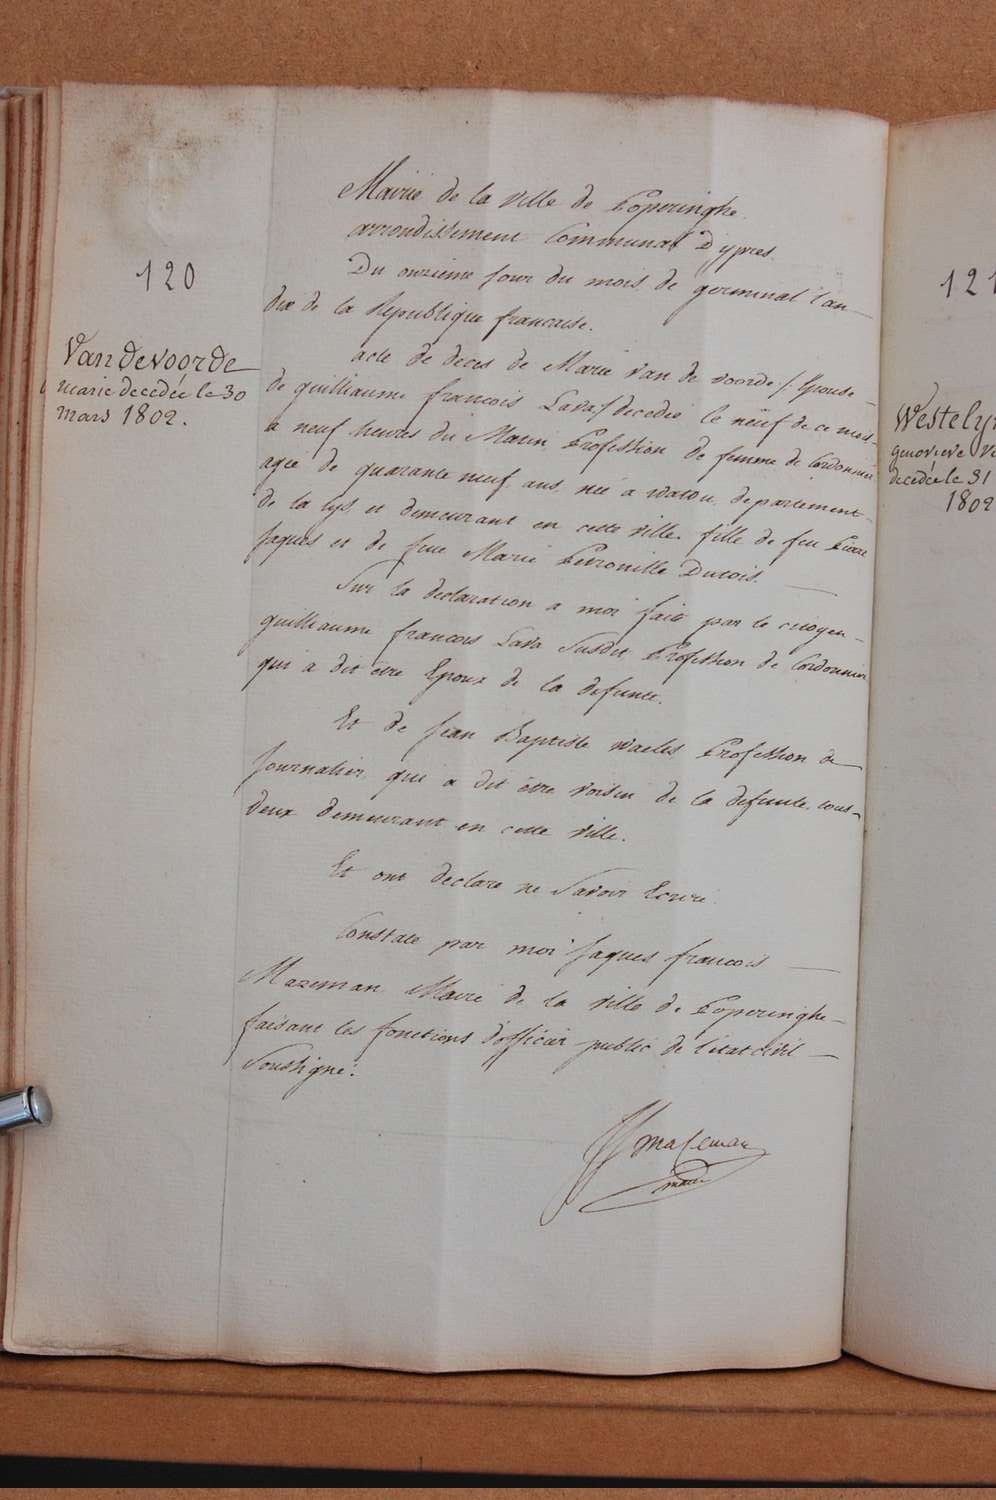 Mairie de la ville de Poperinghe
arrondissement Communal D'ypres.
Du onzieme jour du mois de germinal l'an
dix de la Republique francaise.
120
Vandevoorde
marie decedée le 30
mars 1802.
acte de deces de Marie van de voorde /: Epouse
de guilliaume francois Lava :/ decedée le neuf de ce mois
a neuf heures du Matin, Profession de femme de Cordonnier
agée de quarante neuf ans, née a watou, departement
de la lys et demeurant en cette ville, fille de feu Pierre
Jaques et de feue Marie Petronille Dutois.
Sur la declaration a moi faite par le citoyen
guilliaume francois Lava susdit Profession de Cordonnier
qui a dit être Epoux de la defunte.
Et de Jean Baptiste waeles, Profession de
Journalier, qui a dit être voisin de la defunte, tous
deux demeurant en cette ville.
Et ont declare ne Savoir Ecrire.
Constate par moi Jaques francois
Mazeman, Maire de la ville de Poperinghe
faisant les fonctions d'officier public de l'etat civil
Soussigné:
Mazeman
maire
121
Westely
genovieve
decedée le 31
1802